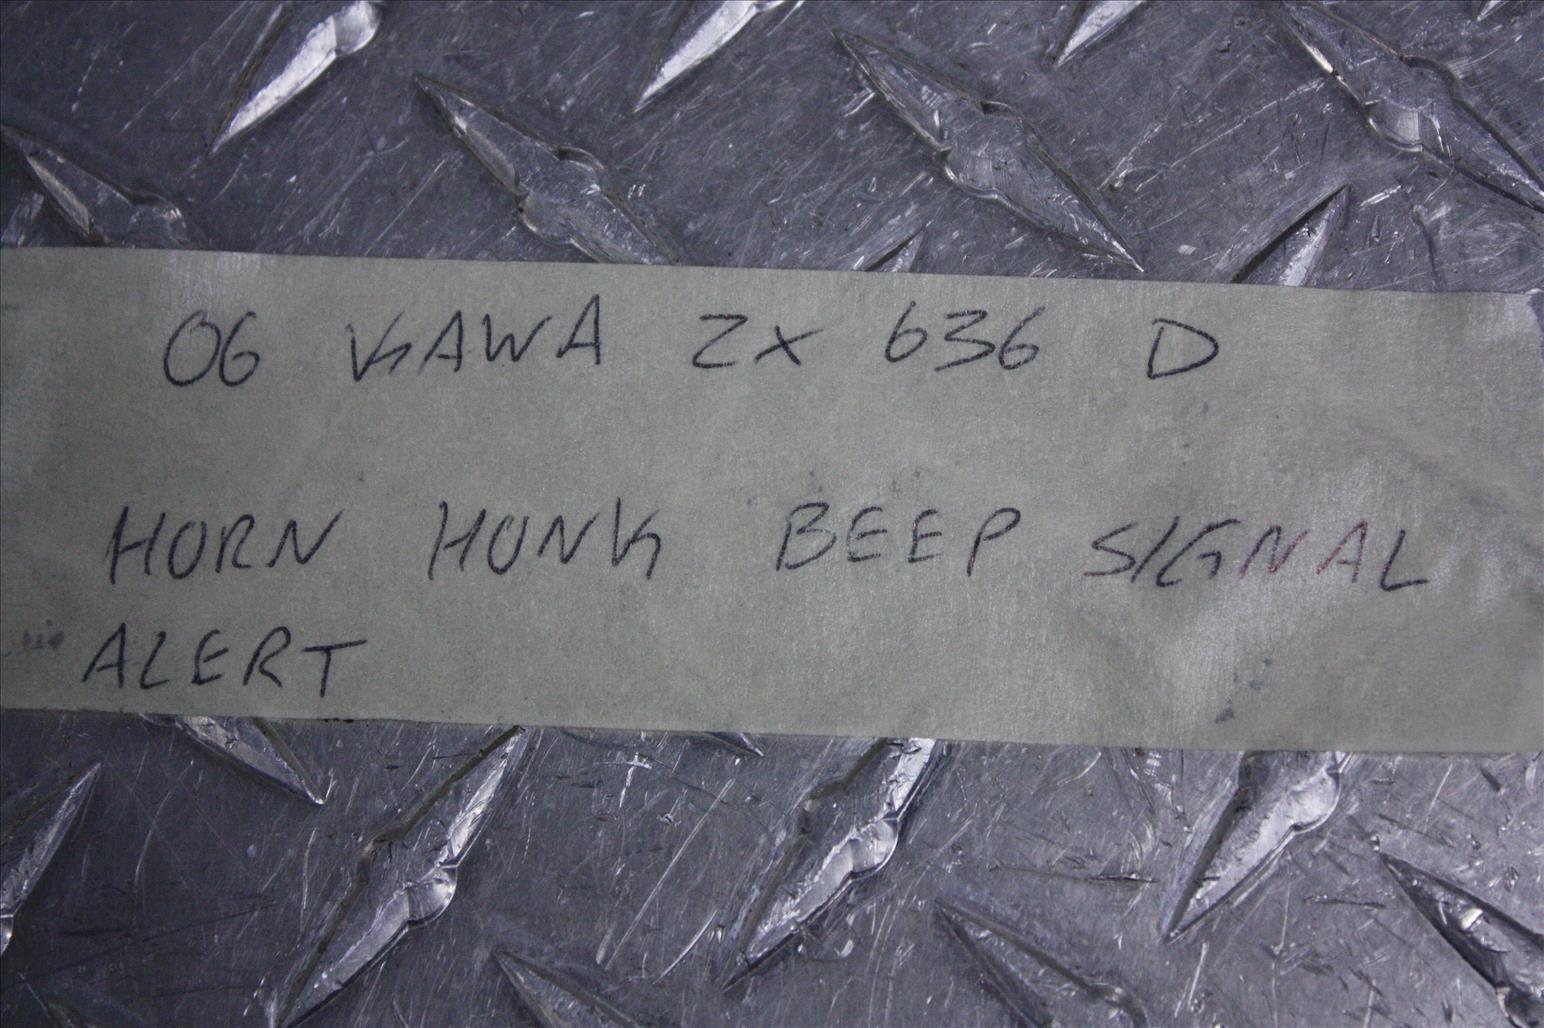 06 KAWA ZX 636 D
HORN HONK BEEP SIGNAL
ALERT